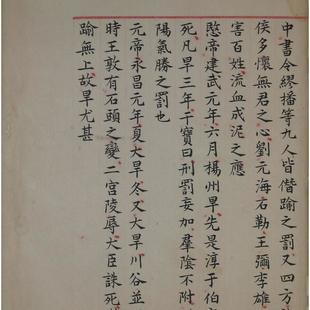 中書令繆播等九人皆僭踰之罰又四方
侯多懷無君之心劉元海石勒王彌李雄
害百姓流血成泥之應
愍帝建武元年六月楊州旱先是淳于伯
死凡旱三年干寶曰刑罰妄加羣陰不附
陽氣勝之罰也
元帝永昌元年夏大旱冬又大旱川谷並
時王敦有石頭之變二宮陵辱大臣誅死
踰無上故旱尤甚